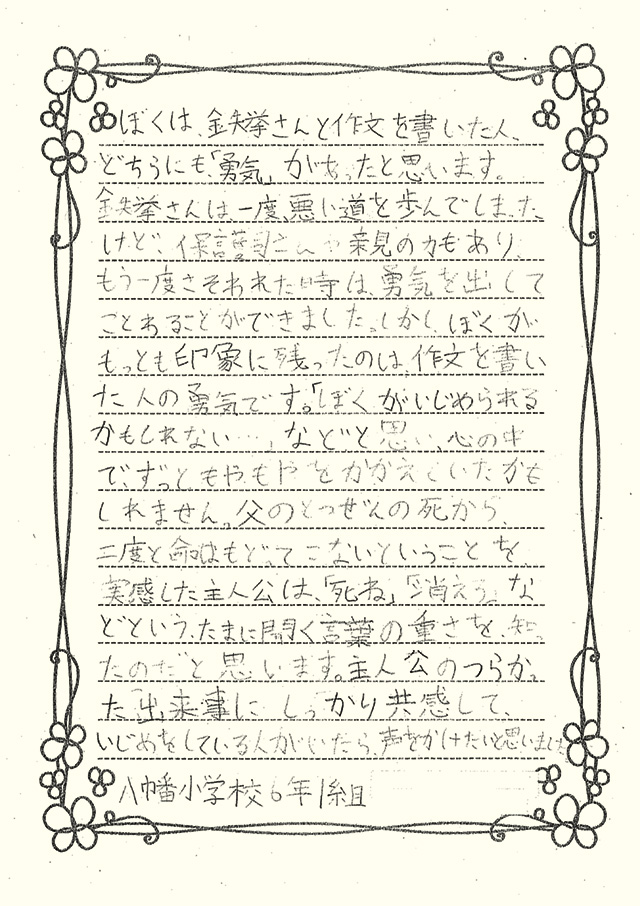 ぼくは、鉄拳さんと作文を書いた人、
どちらにも「勇気」があったと思います。
鉄拳さんは、一度、悪い道を歩んでしまった
けど、保護司さんや親の力もあり、
もう一度さそわれた時は、勇気を出して
ことわることができました。しかし、ぼくが
もっとも印象に残ったのは、作文を書い
た人の勇気です。「ぼくがいじめられる
かもしれない…」などと思い、心の中
で、ずっともやもやをかかえていたかも
しれません。父のとつぜんの死から、
二度と命はもどってこないということを、
実感した主人公は、「死ね」「消えろ」な
どという、たまに聞く言葉の重さを、知っ
たのだと思います。主人公のつらかっ
た出来事にしっかり共感して、
いじめをしている人がいたら、声をかけたいと思いました
八幡小学校6年1組